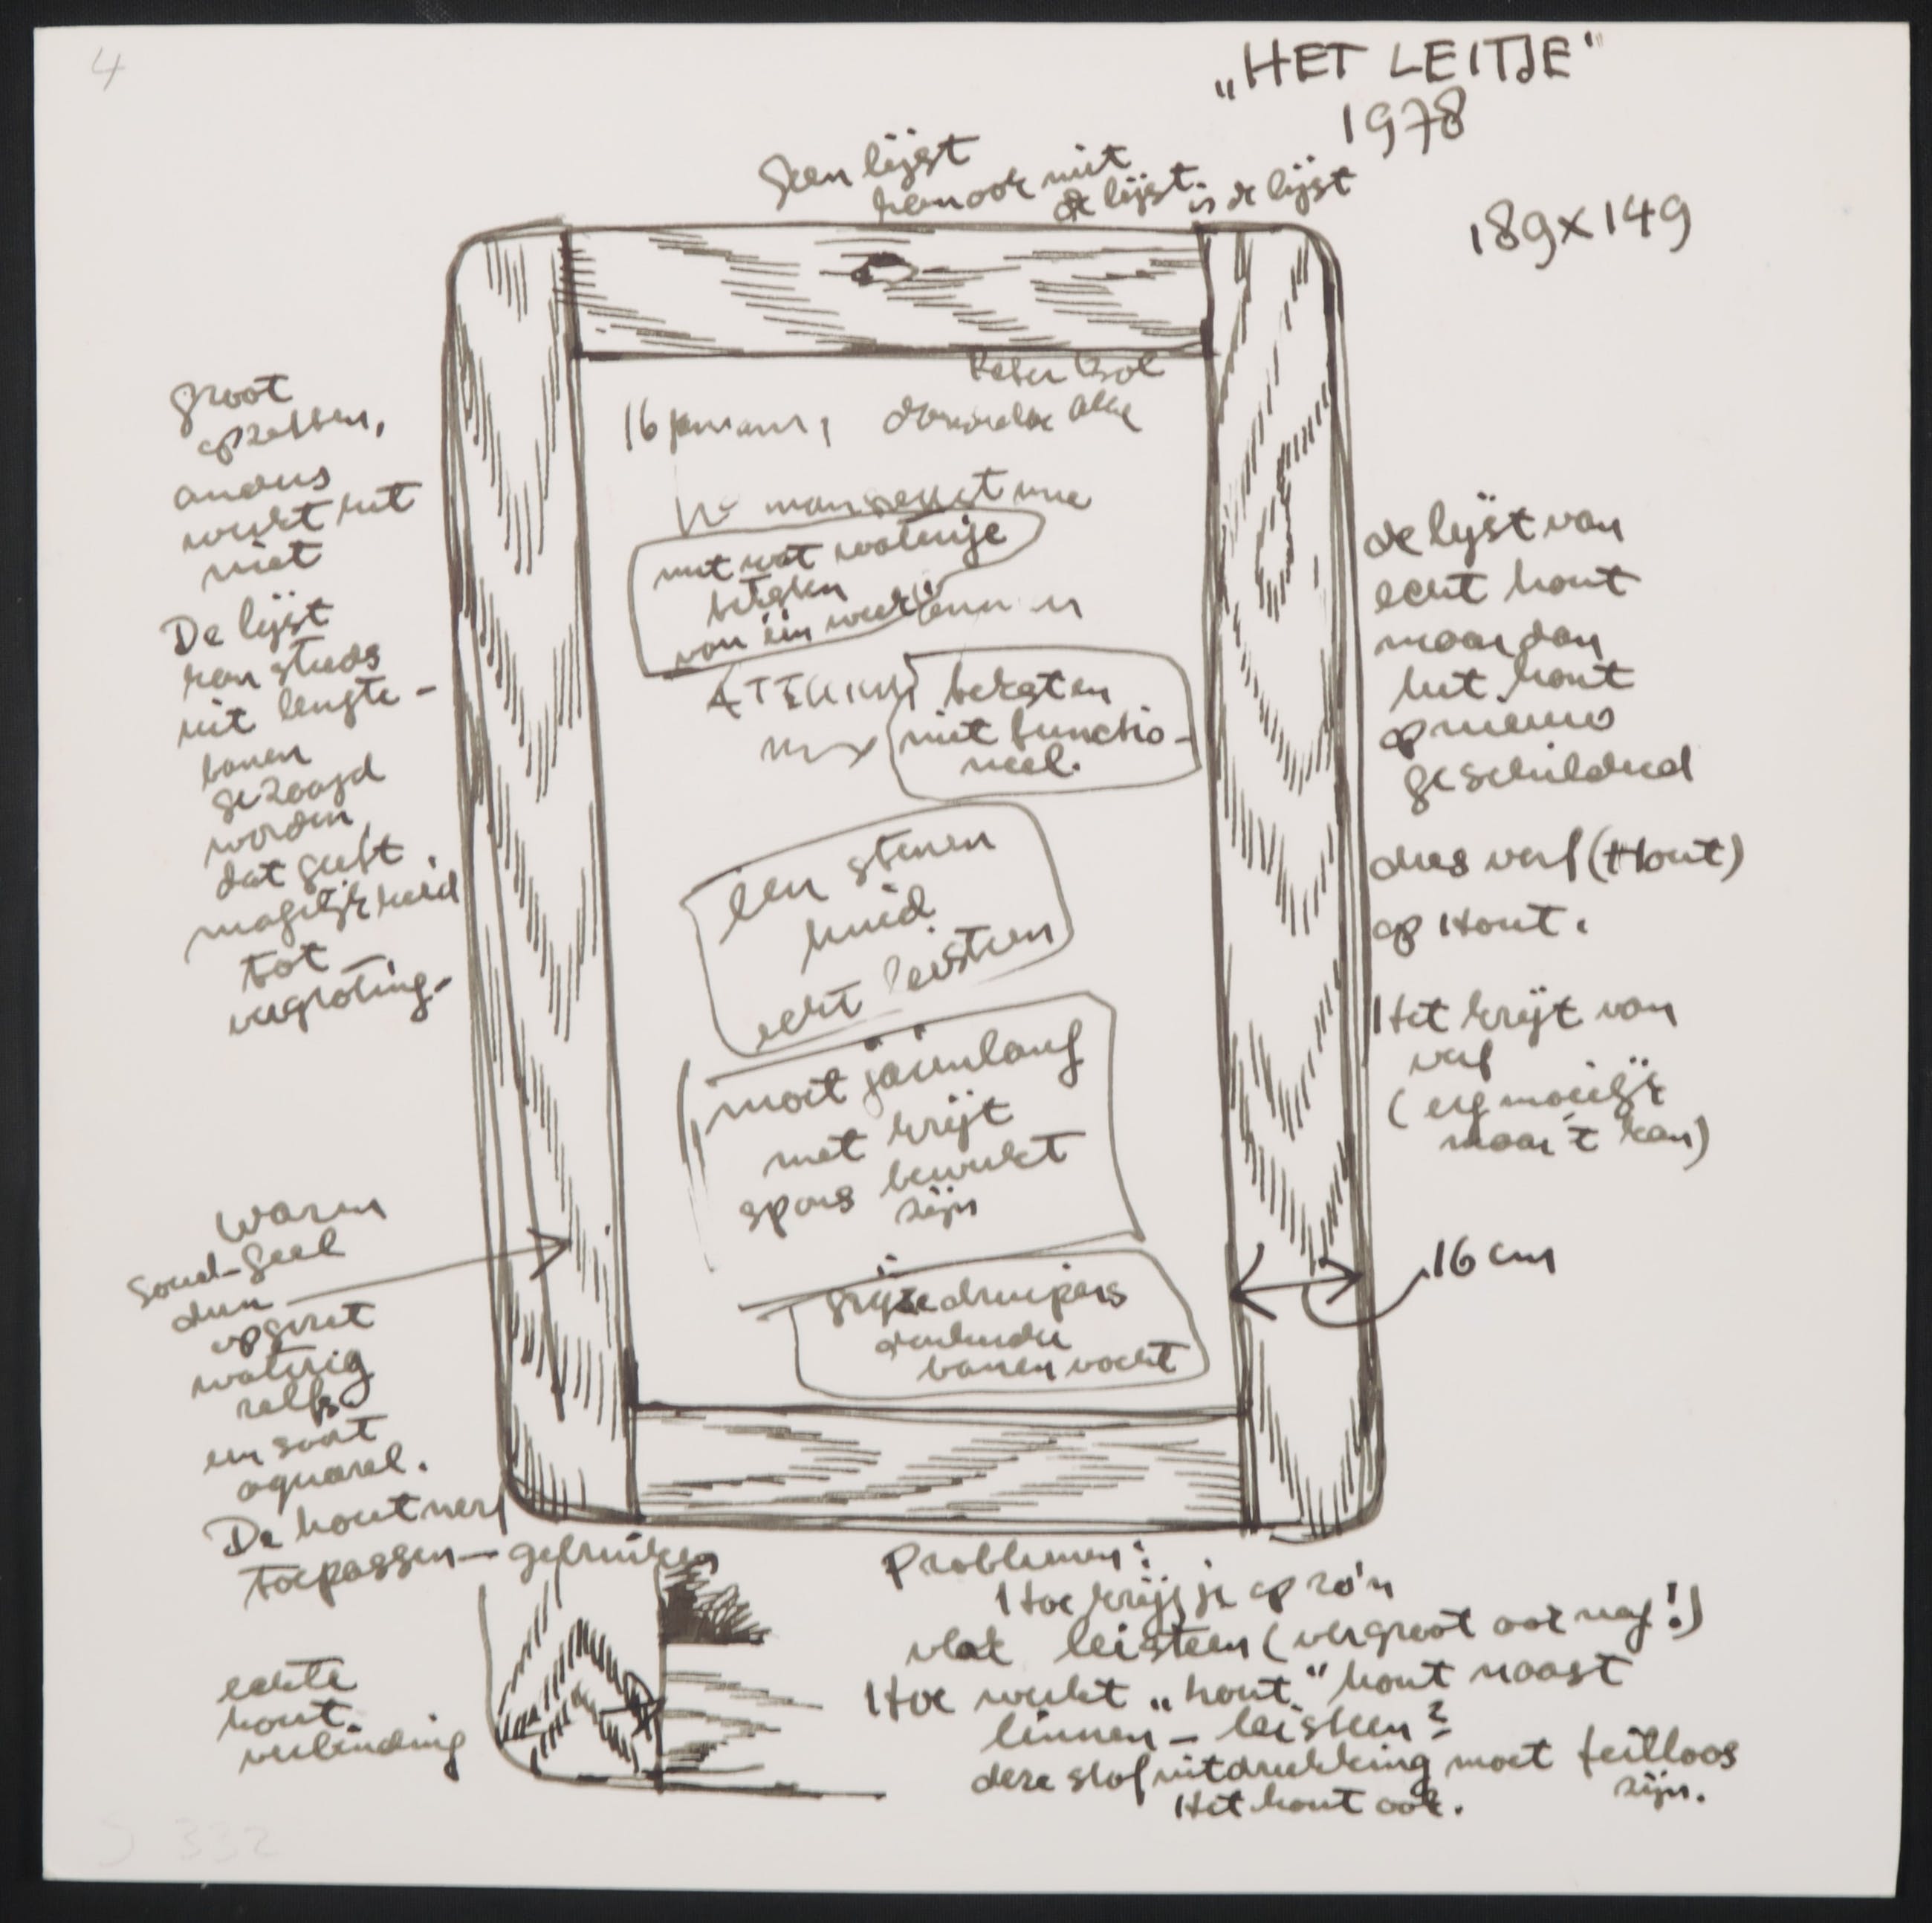 4
„HET LEITJE"
1978
189x149
Geen lijst
kan ook niet
de lijst.
is de lijst
groot
opzetten,
anders
werkt het
niet
De lijst
kan steeds
uit lengte-
banen
gezaagd
worden,
dat geeft
mogelijkheid
tot
vergroting.
Warm
goud-geel
dun
opgezet
waterig
zelfs
een soort
aquarel.
De houtnerf
toepassen - gebruiken
echte
hout
verbinding
Peter Bol
16 januari,
met wat
teksten
van één
teksten
niet functio-
neel.
een stenen
huid
echt leisteen
moet jarenlang
met krijt
spons bewerkt
zijn
grijze druipers
banen vocht
de lijst van
echt hout
maar dan
het hout
opnieuw
geschilderd
dus verf (Hout)
op Hout.
Het krijt van
verf
(erg moeilijk
maar 't kan)
16 cm
Problemen:
Hoe krijg je op zo'n
vlak leisteen (vergroot ook nog!)
Hoe werkt „hout" hout naast
linnen - leisteen?
deze stofuitdrukking moet feilloos
zijn.
Het hout ook.
S 332